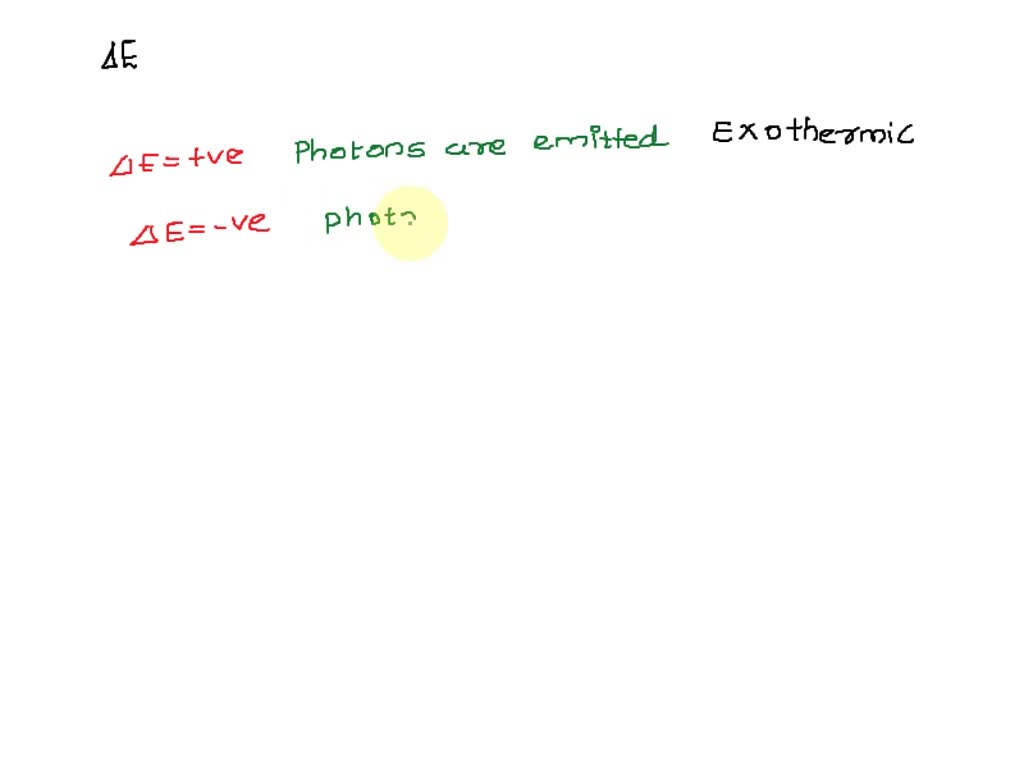 ΔE
ΔE = +ve Photons are emitted Exothermic
ΔE = -ve phot